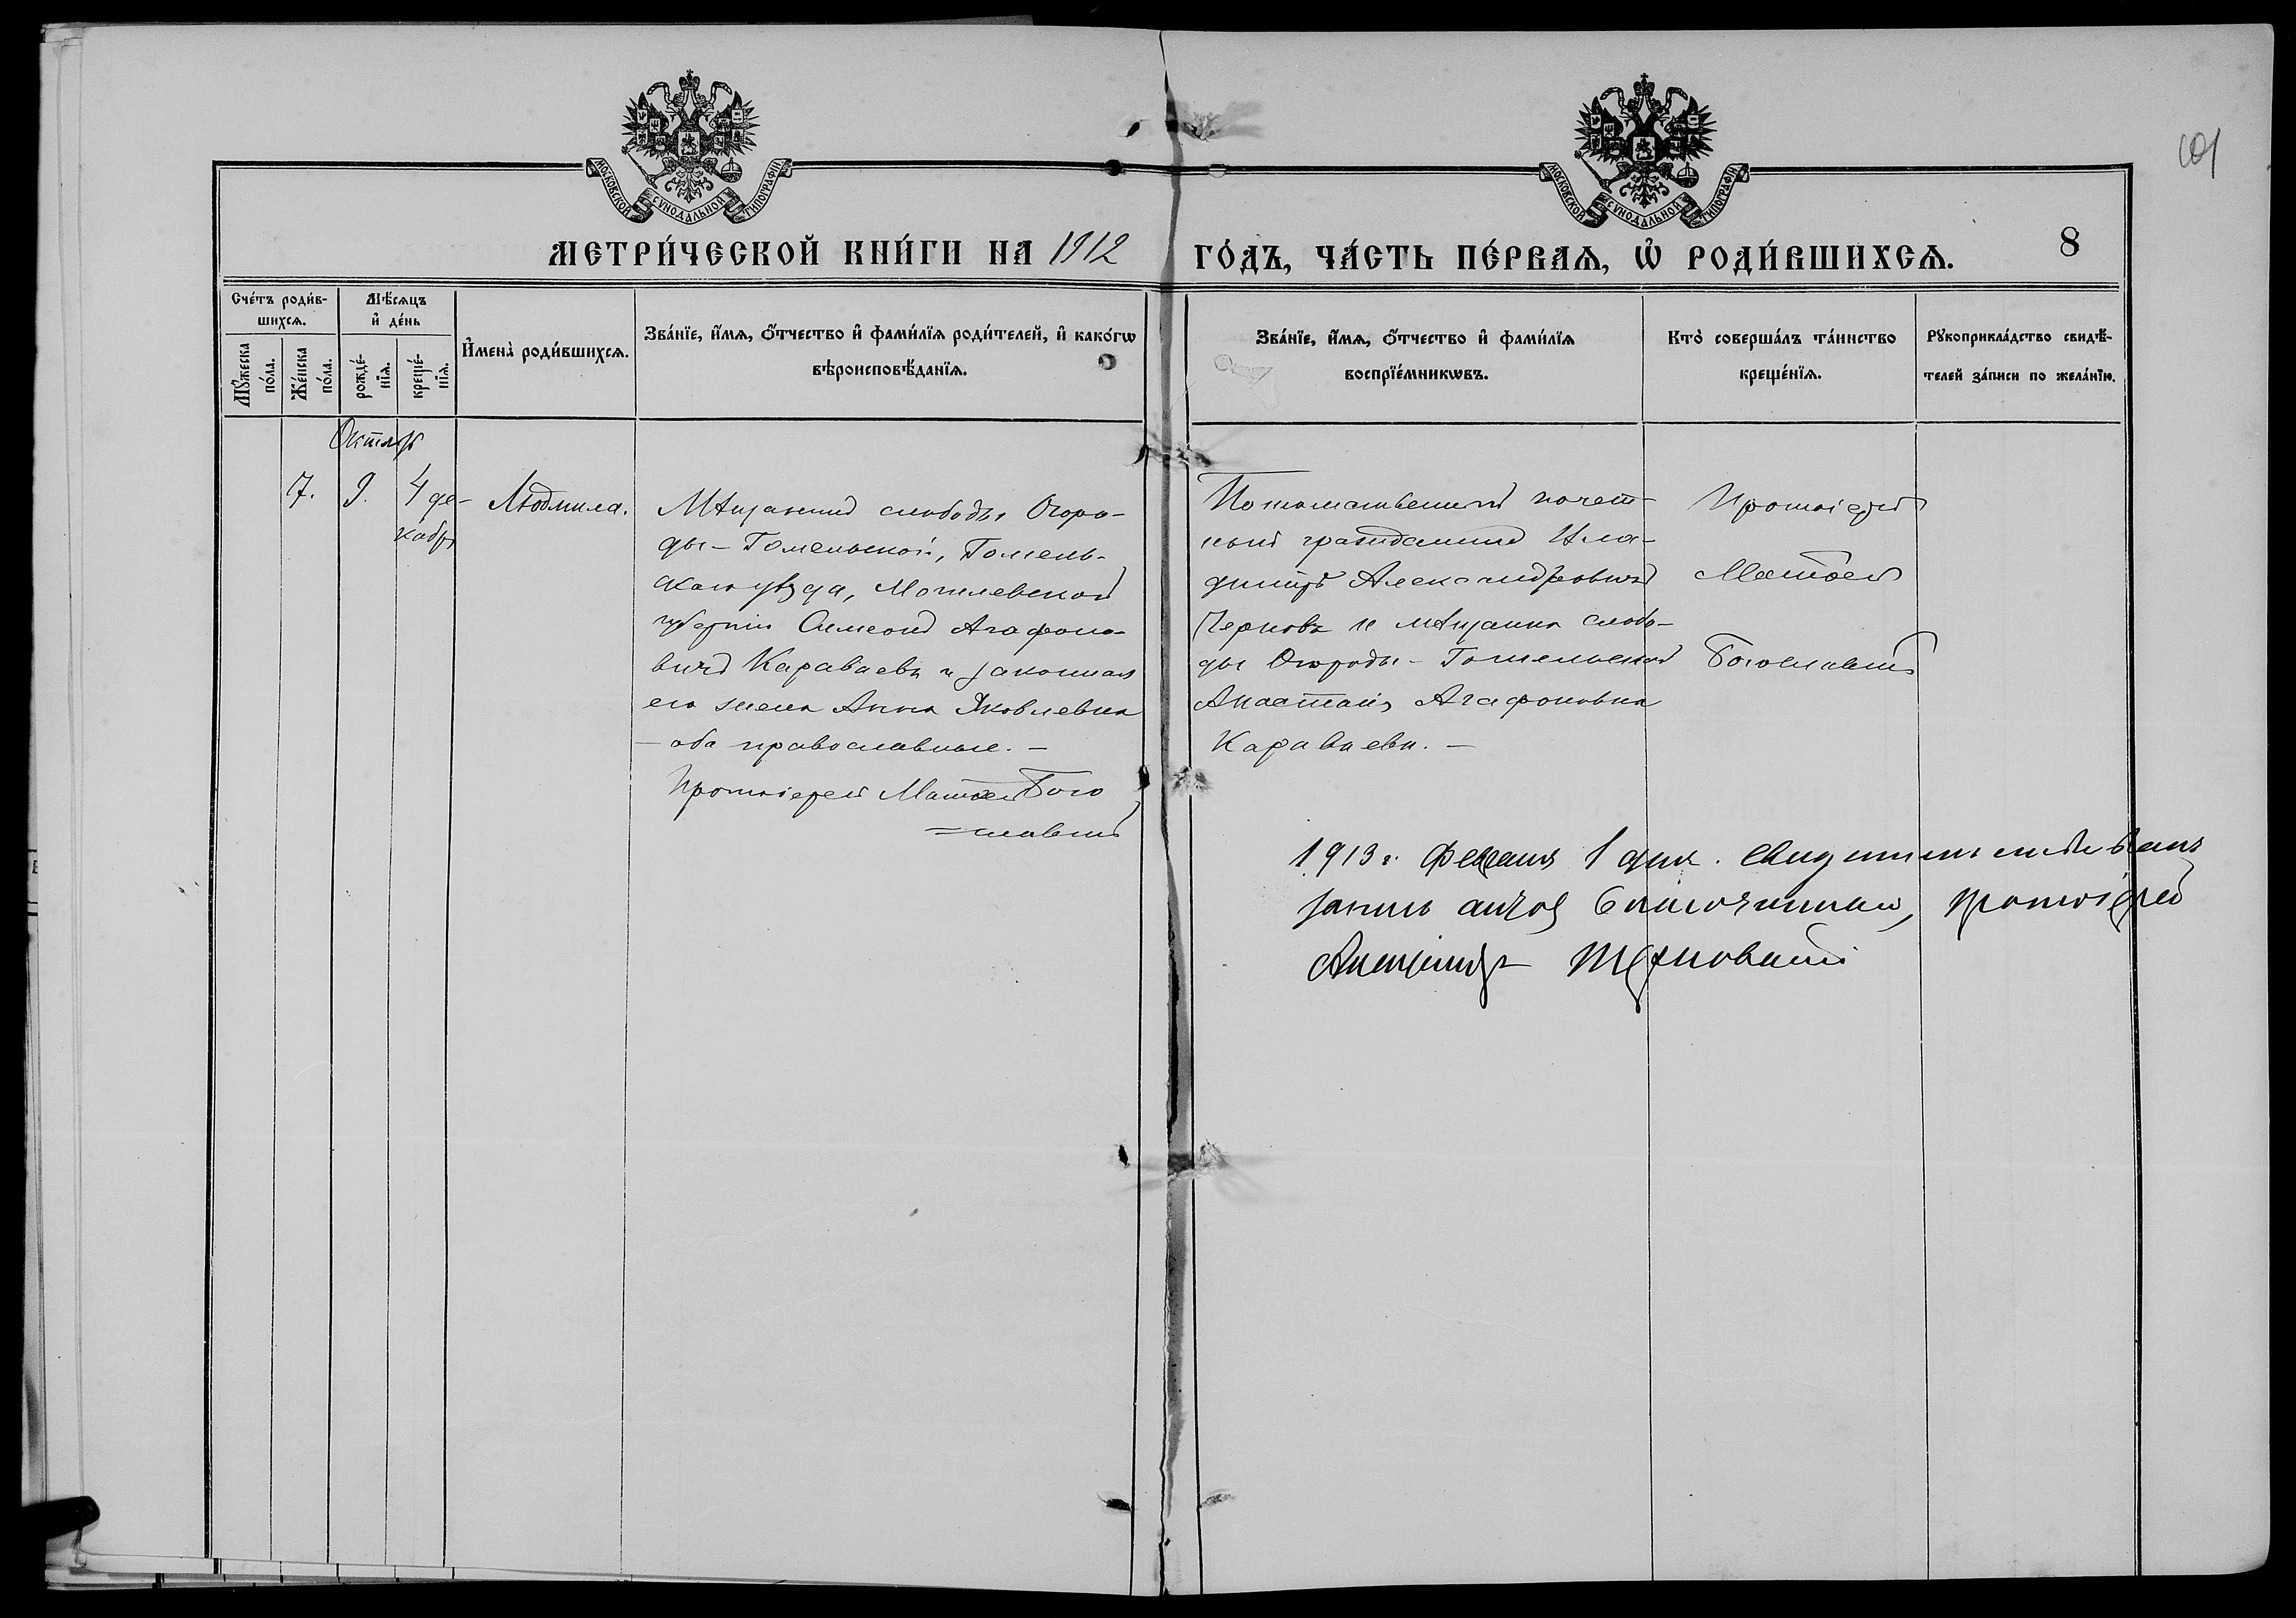 101
МОСКОВСКОЙ СѴНОДАЛЬНОЙ ТИПОГРАФІИ
МОСКОВСКОЙ СѴНОДАЛЬНОЙ ТИПОГРАФІИ
МЕТРИ́ЧЕСКОЙ КНИ́ГИ НА 1912 ГО́ДЪ, ЧА́СТЬ ПЕ́РВАѦ, Ѡ҆ РОДИ́ВШИХСѦ. 8
Сче́тъ роди́в-
шихсѧ.
Мꙋ́жеска
по́ла.
Же́нска
по́ла.
Мѣ́сѧцъ
и҆ де́нь
рожде́-
нїѧ.
креще́-
нїѧ.
И҆мена̀ роди́вшихсѧ.
Зва́нїе, и҆́мѧ, ѻ҆́тчество и҆ фами́лїѧ роди́телей, и҆ како́гѡ
вѣроисповѣ́данїѧ.
Зва́нїе, и҆́мѧ, ѻ҆́тчество и҆ фами́лїѧ
воспрїе́мникѡвъ.
Кто̀ соверша́лъ та́инство
креще́нїѧ.
Рꙋкоприкла́дство свидѣ́-
телей за́писи по жела́нїю.
Октябр
7. 9. 4 де-
кабр
Людмила.
Мѣщанинъ слободы Огоро-
ды-Гомельской, Гомель-
скаго уѣзда, Могилевской
губерніи Симеонъ Агафоно-
вичъ Караваевъ и законная
его жена Анна Яковлевна
- оба православные. -
Протоіерей Матѳей Бого
=словскій
Потомственный почет-
ный гражданинъ Вла-
диміръ Александровичъ
Черновъ и мѣщанка слобо-
ды Огороды-Гомельской
Анастасія Агафоновна
Караваева. -
Протоіерей
Матѳей
Богословскій
1913 г. Февраля 1 дня.
запись благочинный, протоіерей
Александръ